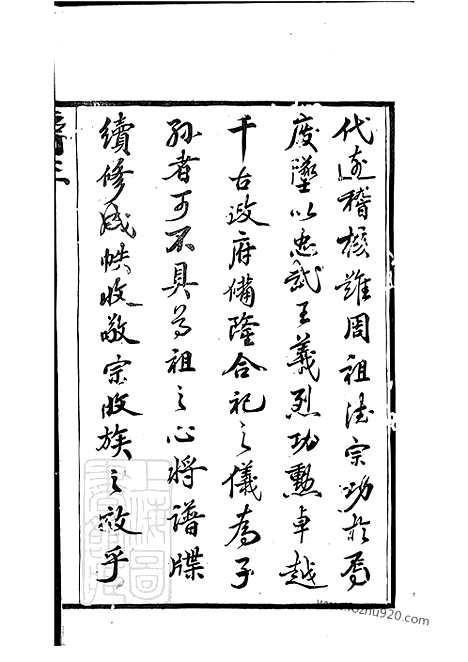 代遠稽核難周祖德宗功於焉
廢墜以忠武王義烈功勲卓越
千古政府備隆合祀之儀為子
孫者可不具為祖之心將譜牒
續修成帙收敬宗收族之效乎
mozhu920.com